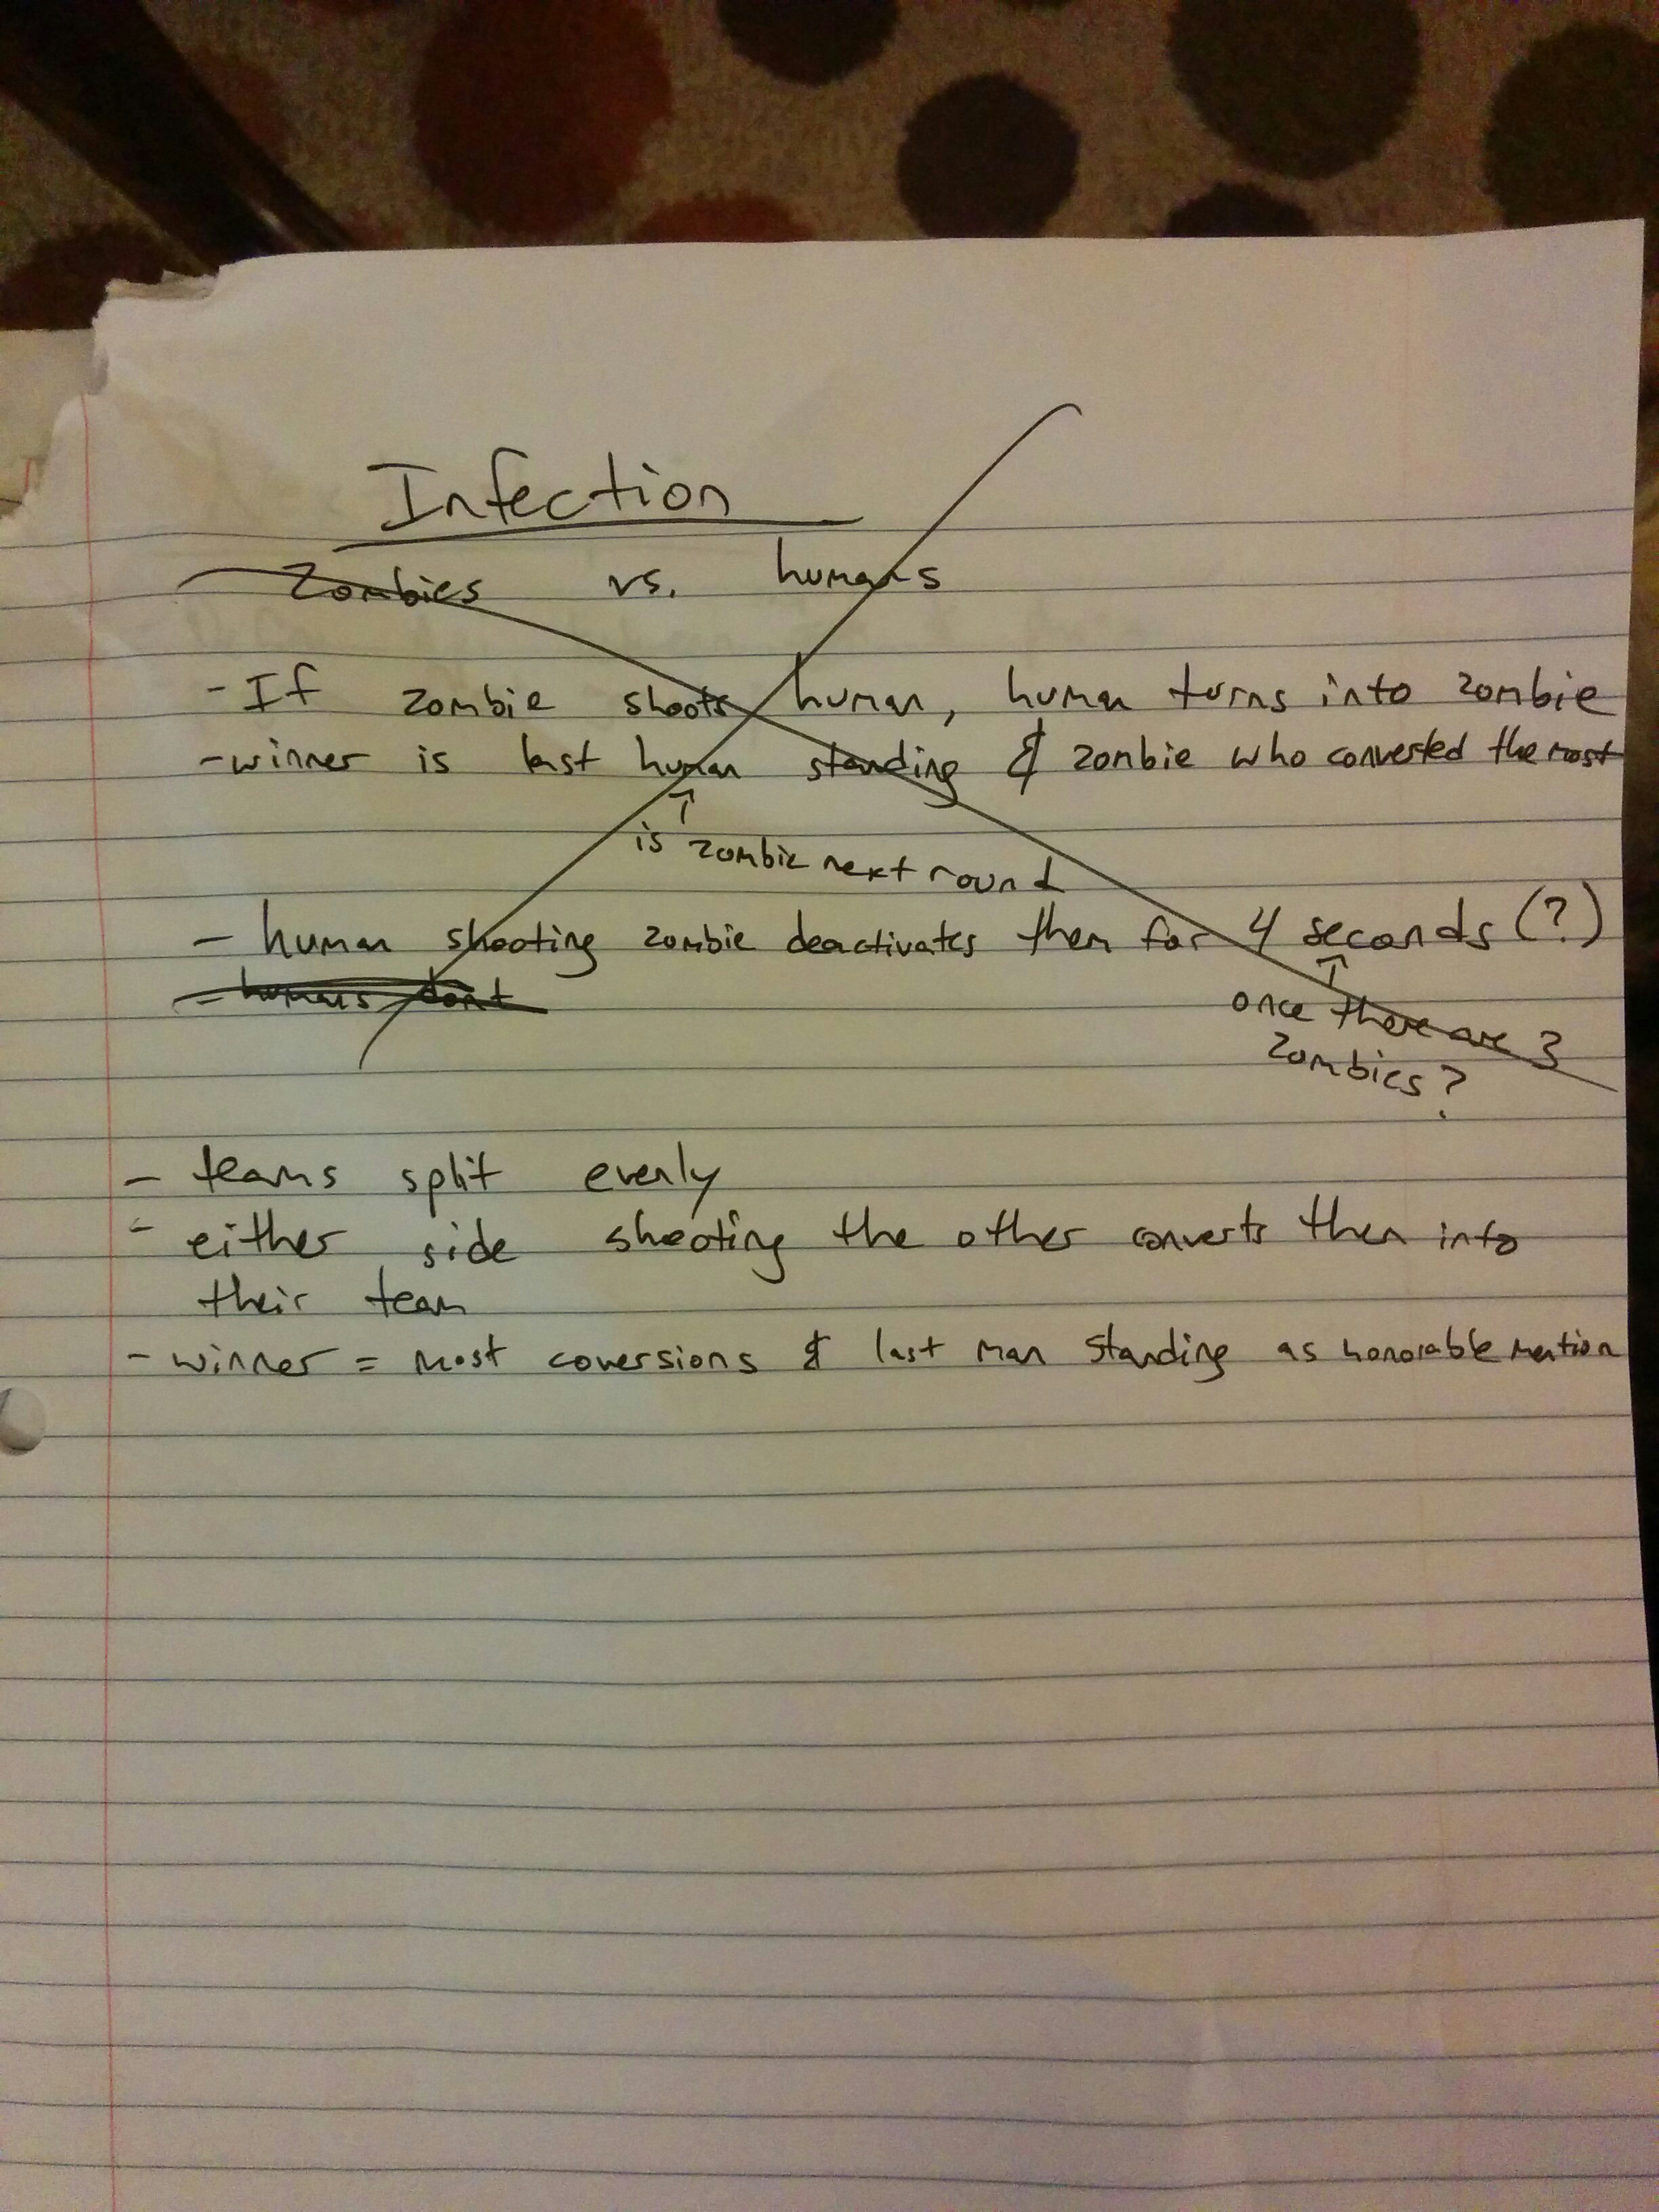 Infection
Zombies vs. humans
- If zombie shoots human, human turns into zombie
- winner is last human standing & zombie who converted the most
↑
is zombie next round
- human shooting zombie deactivates them for 4 seconds (?)
- humans don't
↑
once there are 3
zombies?
- teams split evenly
- either side shooting the other converts them into
their team
- winner = most conversions & last man standing as honorable mention